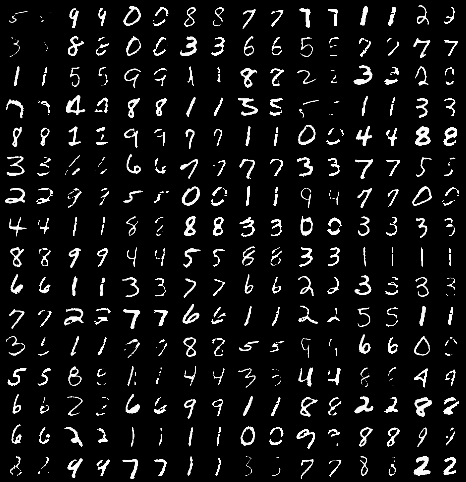 5 5 9 9 0 0 8 8 7 7 7 7 1 1 2 2
3 3 8 8 0 0 3 3 6 6 5 5 7 7 7 7
1 1 5 5 9 9 1 1 8 8 2 2 3 3 2 2
7 7 4 4 8 8 1 1 3 5 5 1 1 3 3
8 8 1 1 9 9 7 7 1 1 0 0 4 4 8 8
3 3 6 6 6 6 7 7 7 7 3 3 7 7 5 5
2 2 9 9 5 5 0 0 1 1 9 9 7 7 0 0
4 4 1 1 8 8 8 8 3 3 0 0 3 3 3 3
8 8 9 9 4 4 5 5 8 8 3 3 1 1 1 1
6 6 1 1 3 3 7 7 6 6 2 2 3 3 8 8
7 7 2 2 7 7 6 6 1 1 2 2 5 5 1 1
3 3 1 1 7 7 8 8 5 5 9 9 6 6 0 0
5 5 8 8 1 1 4 4 3 3 4 4 8 8 4 4
6 6 2 2 6 6 9 9 1 1 8 8 2 2 8 8
6 6 2 2 1 1 1 1 0 0 9 9 8 8 9 9
8 8 9 9 7 7 1 1 3 3 7 7 8 8 2 2